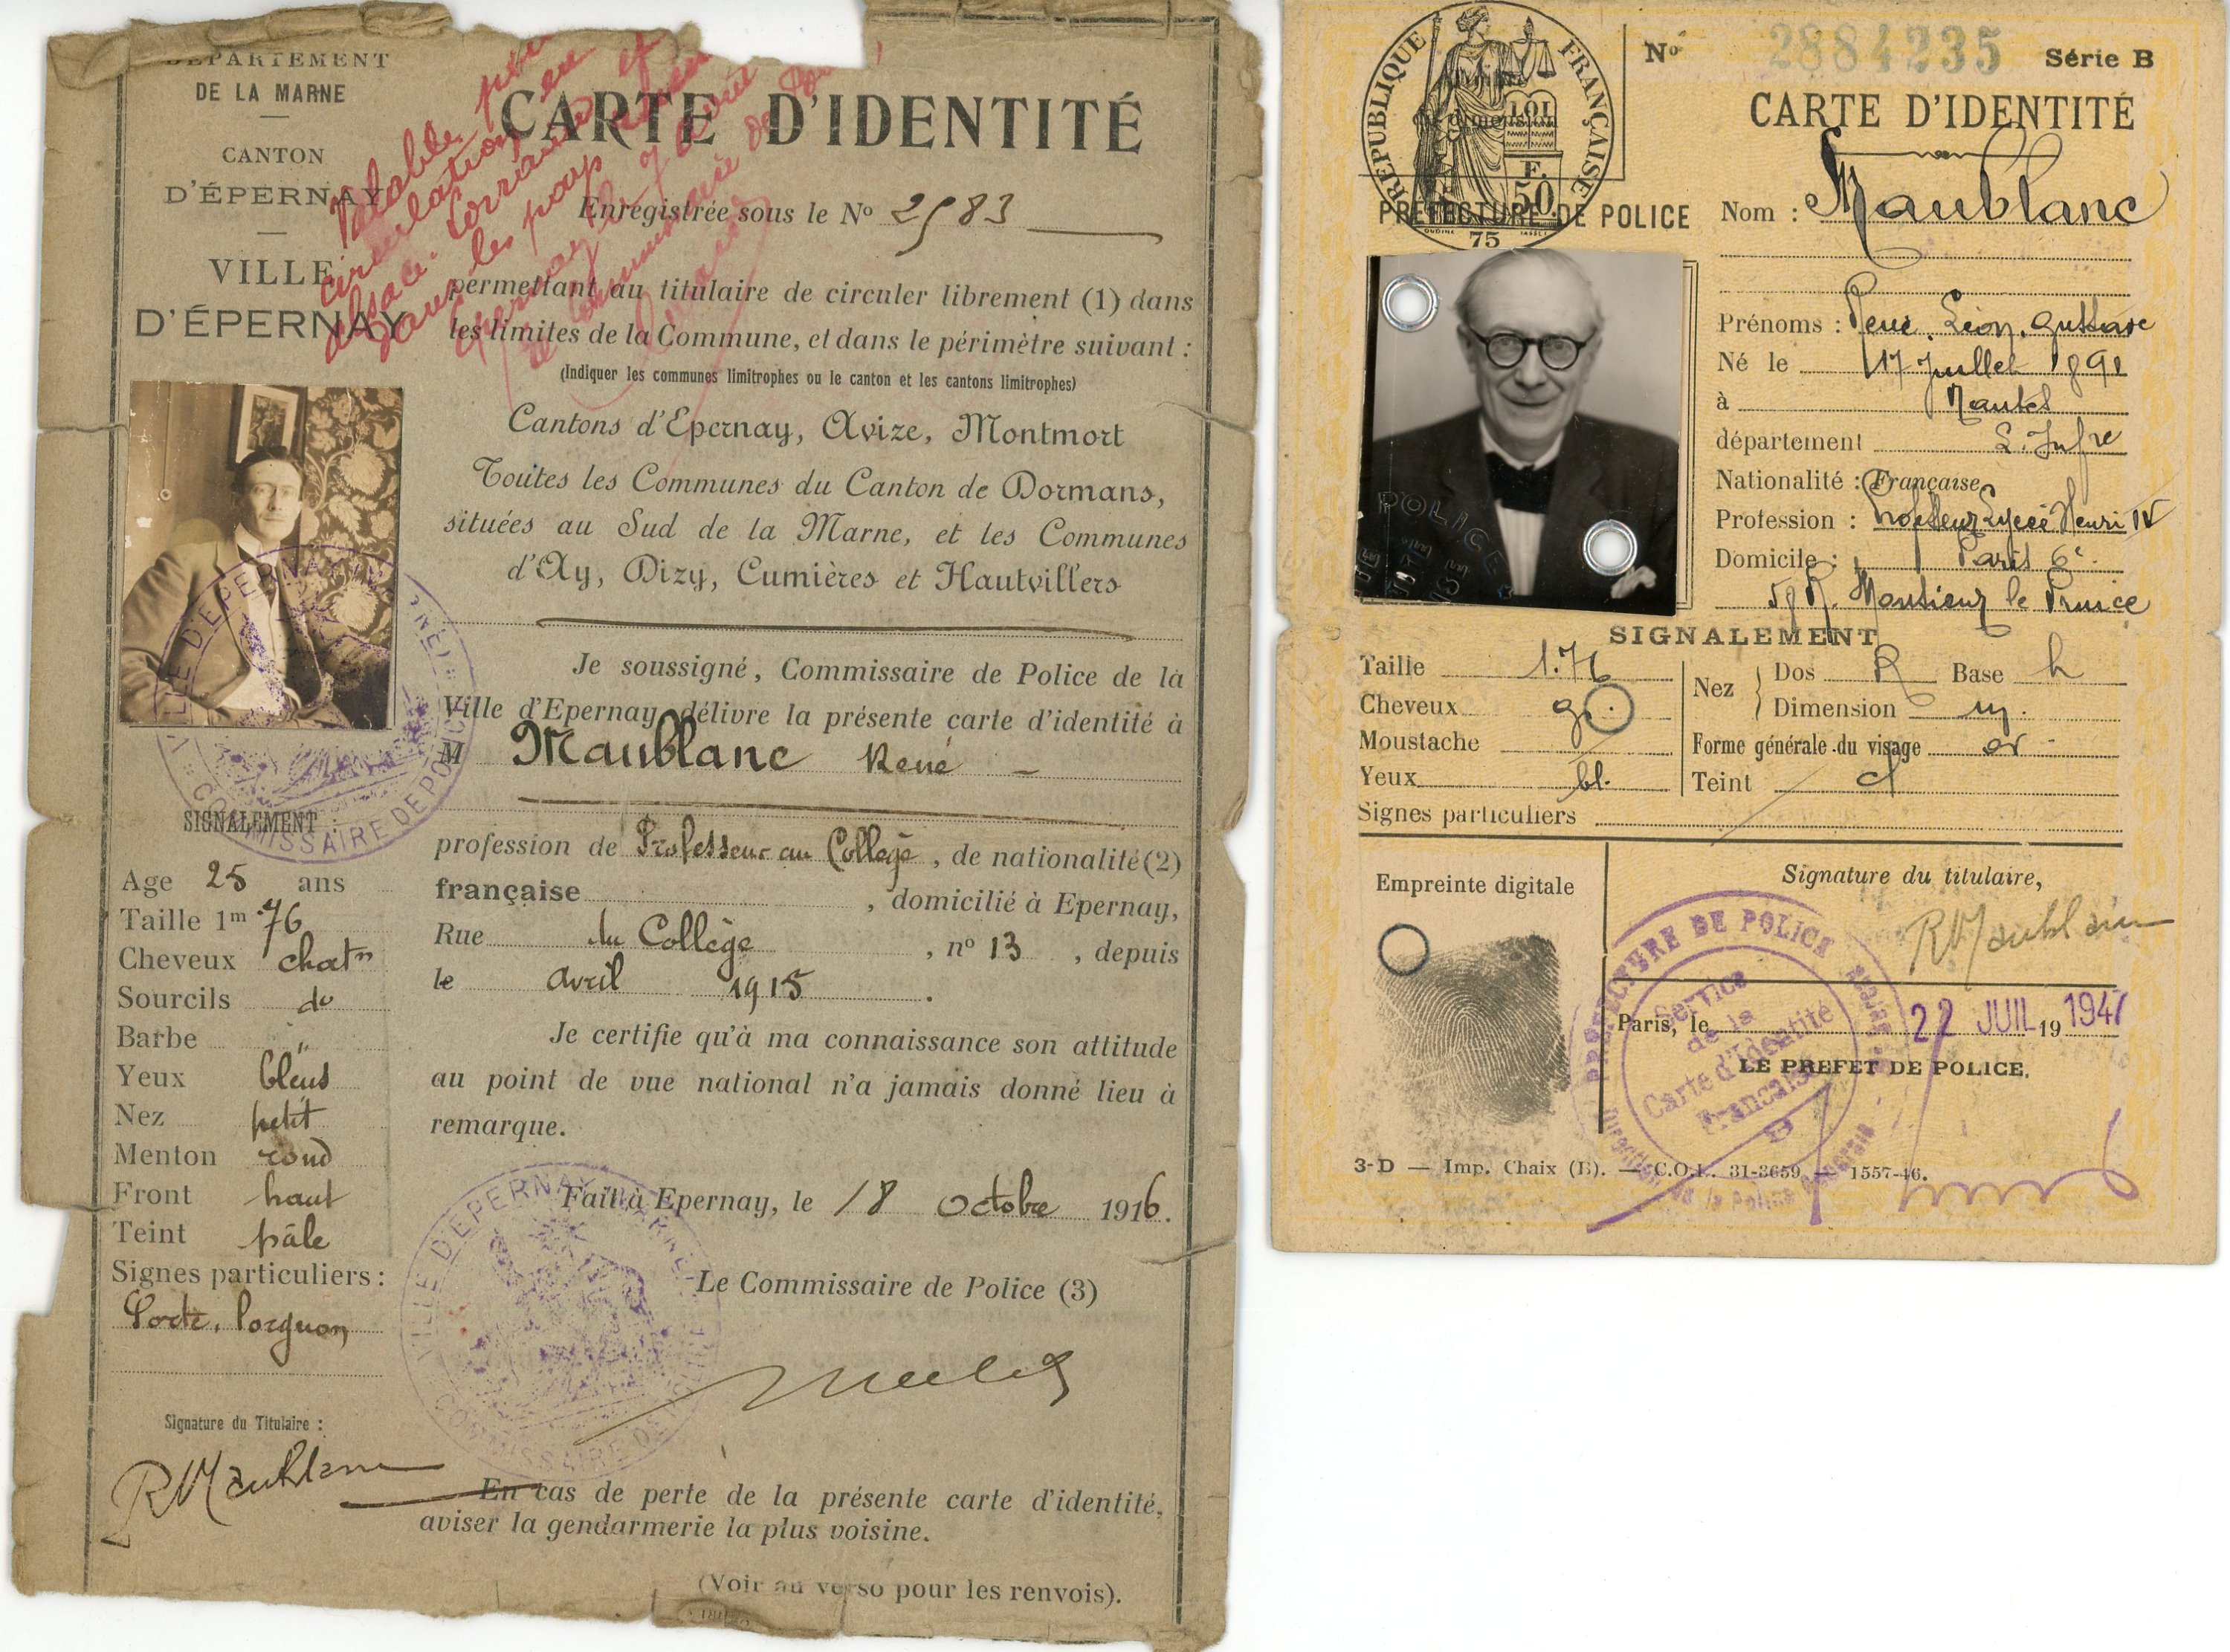 DÉPARTEMENT
DE LA MARNE
CANTON
D'ÉPERNAY
VILLE
D'ÉPERNAY
Valable pour
circulation en
Alsace-Lorraine et
dans les pays
Epernay le 7 avril
le commissaire de
CARTE D'IDENTITÉ
Enregistrée sous le No 2983
permettant au titulaire de circuler librement (1) dans
les limites de la Commune, et dans le périmètre suivant :
(Indiquer les communes limitrophes ou le canton et les cantons limitrophes)
Cantons d'Epernay, Avize, Montmort
Toutes les Communes du Canton de Dormans,
situées au Sud de la Marne, et les Communes
d'Ay, Dizy, Cumières et Hautvillers
Je soussigné, Commissaire de Police de la
Ville d'Epernay, délivre la présente carte d'identité à
M Maublanc René
profession de Professeur au Collège, de nationalité (2)
française, domicilié à Epernay,
Rue du Collège, no 13, depuis
le avril 1915.
Je certifie qu'à ma connaissance son attitude
au point de vue national n'a jamais donné lieu à
remarque.
Fait à Epernay, le 18 Octobre 1916.
Le Commissaire de Police (3)
En cas de perte de la présente carte d'identité,
aviser la gendarmerie la plus voisine.
(Voir au verso pour les renvois).
VILLE D'EPERNAY (MARNE)
COMMISSAIRE DE POLICE
SIGNALEMENT :
Age 25 ans
Taille 1m 76
Cheveux chatn
Sourcils do
Barbe "
Yeux bleus
Nez petit
Menton rond
Front haut
Teint pâle
Signes particuliers :
Porte. Lorgnon
Signature du Titulaire :
RMaublanc
VILLE D'EPERNAY (MARNE)
COMMISSAIRE DE POLICE
RÉPUBLIQUE FRANÇAISE
LOI
F.
50
75
PRÉFECTURE DE POLICE
No 2884235 Série B
CARTE D'IDENTITÉ
Nom : Maublanc
Prénoms : René. Léon. Gustave
Né le 17 Juillet 1891
à Nantes
département L. Infre
Nationalité : Française
Profession : Professeur Lycée Henri IV
Domicile : Paris 6e
R. Monsieur le Prince
POLICE
SIGNALEMENT
Taille 1.76
Cheveux g.
Moustache
Yeux bl.
Nez Dos R Base h
Dimension m.
Forme générale du visage ov
Teint cl
Signes particuliers
Empreinte digitale
Signature du titulaire,
RMaublanc
Paris, le 22 JUIL 19 1947
LE PREFET DE POLICE,
PREFECTURE DE POLICE
Service
de la
Carte d'Identité
Française
B
3-D — Imp. Chaix (B). — C.O.L. 31-3659 — 1557-46.